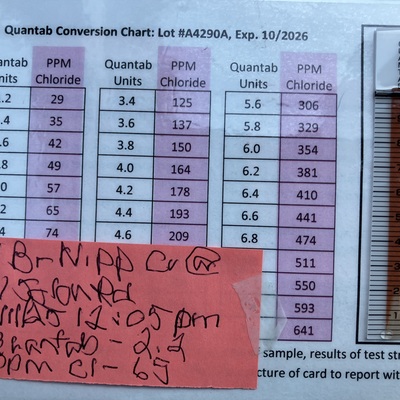 Quantab Conversion Chart: Lot #A4290A, Exp. 10/2026
antab PPM Quantab PPM Quantab PPM
nits Chloride Units Chloride Units Chloride
.2 29 3.4 125 5.6 306
.4 35 3.6 137 5.8 329
.6 42 3.8 150 6.0 354
.8 49 4.0 164 6.2 381
.0 57 4.2 178 6.4 410
.2 65 4.4 193 6.6 441
.4 74 4.6 209 6.8 474
511
550
593
641
Br Nipp Cr @
12:05 pm
Quantab - 2.2
ppm Cl - 65
sample, results of test str
cture of card to report with